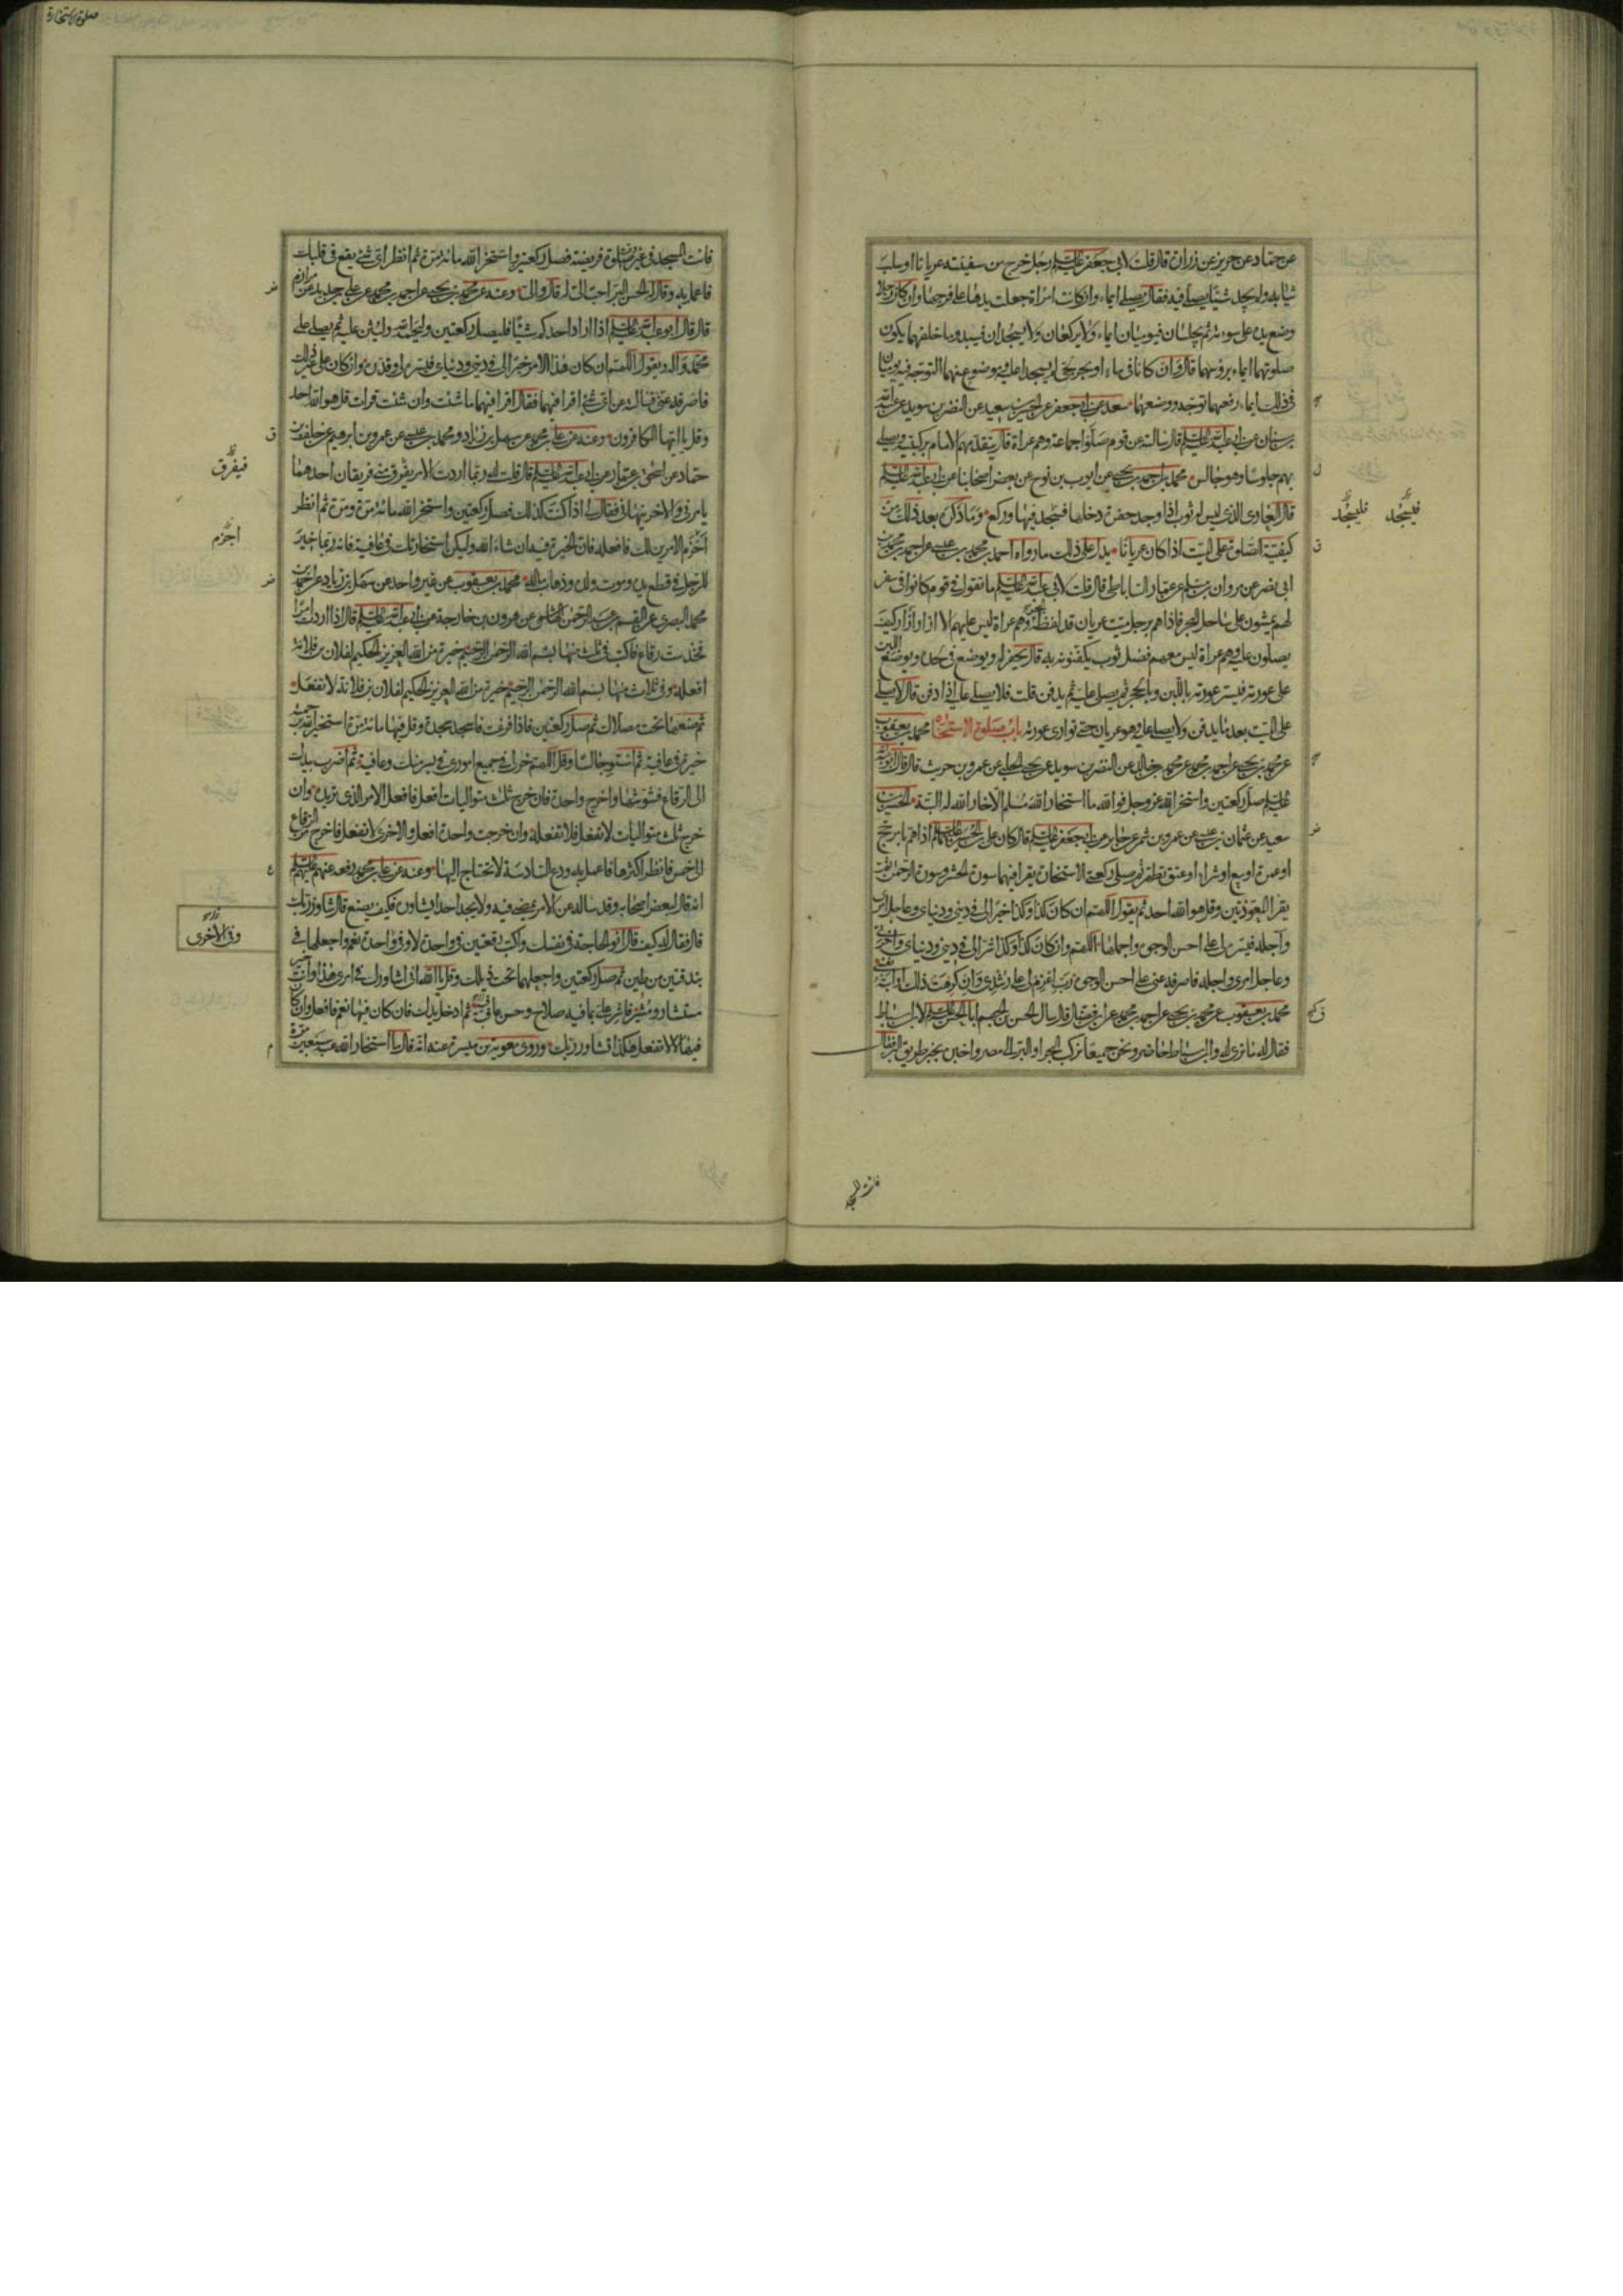 عن حماد عن حريز عن زرارة قال قلت لابى جعفر عليه السلم رجل خرج من سفينته عريانا او سلب
ثيابه ولم يجد شيئا يصلى فيه فقال يصلى ايماء وان كانت امراة جعلت يدها على فرجها وان كان رجلا
وضع يده على سوءته ثم يجلسان فيوميان ايماء ولا يركعان ولا يسجدان فيبدو ما خلفهما يكون
صلوتهما ايماء بروسهما قال وان كانا فى ماء او بحر لجى لم يسجدا عليه وموضوع عنهما التوجه فيه يوميان
فى ذلك ايماء رفعهما توجه ووضعهما سعد عن ابى جعفر عن الحسين بن سعيد عن النضر بن سويد عن عبد الله
بن سنان عن ابى عبد الله عليه السلم قال سالته عن قوم صلوا جماعة وهم عراة قال يتقدمهم الامام بركبتيه ويصلى
بهم جلوسا وهو جالس محمد بن احمد بن يحيى عن ايوب بن نوح عن بعض اصحابنا عن ابى عبد الله عليه السلم
قال العارى الذى ليس له ثوب اذا وجد حفرة دخلها فسجد فيها وركع وما ذكره بعد ذلك من
كيفية الصلوة على الميت اذا كان عريانا يدل على ذلك ما رواه احمد بن محمد بن عيسى عن احمد بن محمد بن
ابى نصر عن مروان بن مسلم عن عمار الساباطى قال قلت لابى عبد الله عليه السلم ما تقول فى قوم كانوا فى سفر
لهم يمشون على ساحل البحر فاذا هم برجل ميت عريان قد لفظه البحر وهم عراة ليس عليهم الا ازار وكيف
يصلون عليه وهم عراة ليس معهم فضل ثوب يكفنونه به قال يحفر له ويوضع فى لحده ويوضع اللبن
على عورته فيستر عورته باللبن وبالحجر ثم يصلى عليه ثم يدفن قلت فلا يصلى عليه اذا دفن قال لا يصلى
على الميت بعد ما يدفن ولا يصلى عليه وهو عريان حتى توارى عورته باب صلوة الاستخارة محمد بن يعقوب
عن محمد بن يحيى عن احمد بن محمد عن محمد بن خالد عن النضر بن سويد عن يحيى الحلبى عن عمرو بن حريث قال قال ابو عبد الله
عليه السلم صل ركعتين واستخر الله عز وجل فوالله ما استخار الله مسلم الا خار الله له البتة الحسين بن
سعيد عن عثمان بن عيسى عن عمرو بن شمر عن جابر عن ابى جعفر عليه السلم قال كان على بن الحسين عليهما السلم اذا هم بامر حج
او عمرة او بيع او شراء او عتق تطهر ثم صلى ركعتى الاستخارة يقرا فيهما سورة الحشر وسورة الرحمن ثم
يقرا المعوذتين وقل هو الله احد ثم يقول اللهم ان كان كذا وكذا خيرا لى فى دينى ودنياى وعاجل امرى
وآجله فيسره لى على احسن الوجوه واجملها اللهم وان كان كذا وكذا شرا لى فى دينى ودنياى واخرتى
وعاجل امرى واجله فاصرفه عنى على احسن الوجوه رب اعزم لى على رشدى وان كرهت ذلك او ابته نفسى
محمد بن يعقوب عن محمد بن يحيى عن احمد بن محمد عن ابن فضال قال سال الحسن بن الجهم ابا الحسن عليه السلم لابن اسباط
فقال له ما ترى له وابن اسباط حاضر ونحن جميعا نركب البحر او البر الى مصر واخبره بخبر طريق البر فقال
فيسجد
فليسجد
فات المسجد
صلوة الاستخارة
فات المسجد فى غير وقت صلوة فريضة فصل ركعتين واستخر الله مائة مرة ثم انظر اى شئ يقع فى قلبك
فاعمل به وقال له الحسن البر احب الى له قال والى وعنه عن محمد بن يحيى عن احمد بن محمد عن على بن حديد عن مرازم
قال قال ابو عبد الله عليه السلم اذا اراد احدكم شيئا فليصل ركعتين وليحمد الله وليثن عليه ثم يصلى على
محمد وآله ويقول اللهم ان كان هذا الامر خيرا لى فى دينى ودنياى فيسره لى وقدره وان كان على غير ذلك
فاصرفه عنى فسالته عن اى شئ اقرا فيهما فقال اقرا فيهما ما شئت وان شئت قرات قل هو الله احد
وقل يا ايها الكافرون وعنه عن على بن محمد عن سهل بن زياد ومحمد بن عيسى عن عمرو بن ابرهيم عن خلف بن
حماد عن اسحق بن عمار عن ابى عبد الله عليه السلم قال قلت له ربما اردت الامر يفرق منى فريقان احدهما
يامرنى والاخر ينهانى فقال لى اذا كنت كذلك فصل ركعتين واستخر الله مائة مرة ومرة ثم انظر
احزم الامرين لك فافعله فان الخيرة فيه ان شاء الله وليكن استخارتك فى عافية فانه ربما خير
للرجل فى قطع يده وموت ولده وذهاب ماله محمد بن يعقوب عن غير واحد عن سهل بن زياد عن احمد بن
محمد البصرى عن القسم بن عبد الرحمن الهاشمى عن هرون بن خارجة عن ابى عبد الله عليه السلم قال اذا اردت امرا
فخذ ست رقاع فاكتب فى ثلث منها بسم الله الرحمن الرحيم خيرة من الله العزيز الحكيم لفلان بن فلانة
افعله وفى ثلاث منها بسم الله الرحمن الرحيم خيرة من الله العزيز الحكيم لفلان بن فلانة لا تفعل
ثم ضعها تحت مصلاك ثم صل ركعتين فاذا فرغت فاسجد سجدة وقل فيها مائة مرة استخير الله برحمته
خيرة فى عافية ثم استو جالسا وقل اللهم خر لى فى جميع امورى فى يسر منك وعافية ثم اضرب بيدك
الى الرقاع فشوشها واخرج واحدة فان خرج ثلث متواليات افعل فافعل الامر الذى تريده وان
خرج ثلث متواليات لا تفعل فلا تفعله وان خرجت واحدة افعل والاخرى لا تفعل فاخرج من الرقاع
الى خمس فانظر اكثرها فاعمل به ودع السادسة لا تحتاج اليها وعنه عن على بن محمد رفعه عنهم عليهم السلم
انه قال لبعض اصحابه وقد ساله عن الامر يمضى فيه ولا يجد احدا يشاوره فكيف يصنع قال شاور ربك
قال فقال له كيف قال انو الحاجة فى نفسك واكتب رقعتين فى واحدة لا وفى واحدة نعم واجعلهما فى
بندقتين من طين ثم صل ركعتين واجعلهما تحت ذيلك وقل يا الله انى اشاورك فى امرى هذا وانت خير
مستشار ومشير فاشر على بما فيه صلاح وحسن عاقبة ثم ادخل يدك فان كان فيها نعم فافعل وان كان
فيها لا لا تفعل هكذا تشاور ربك وروى معوية بن ميسرة عنه انه قال ما استخار الله عبد سبعين مرة
فيفرق
اجزم
وفى الاخرى